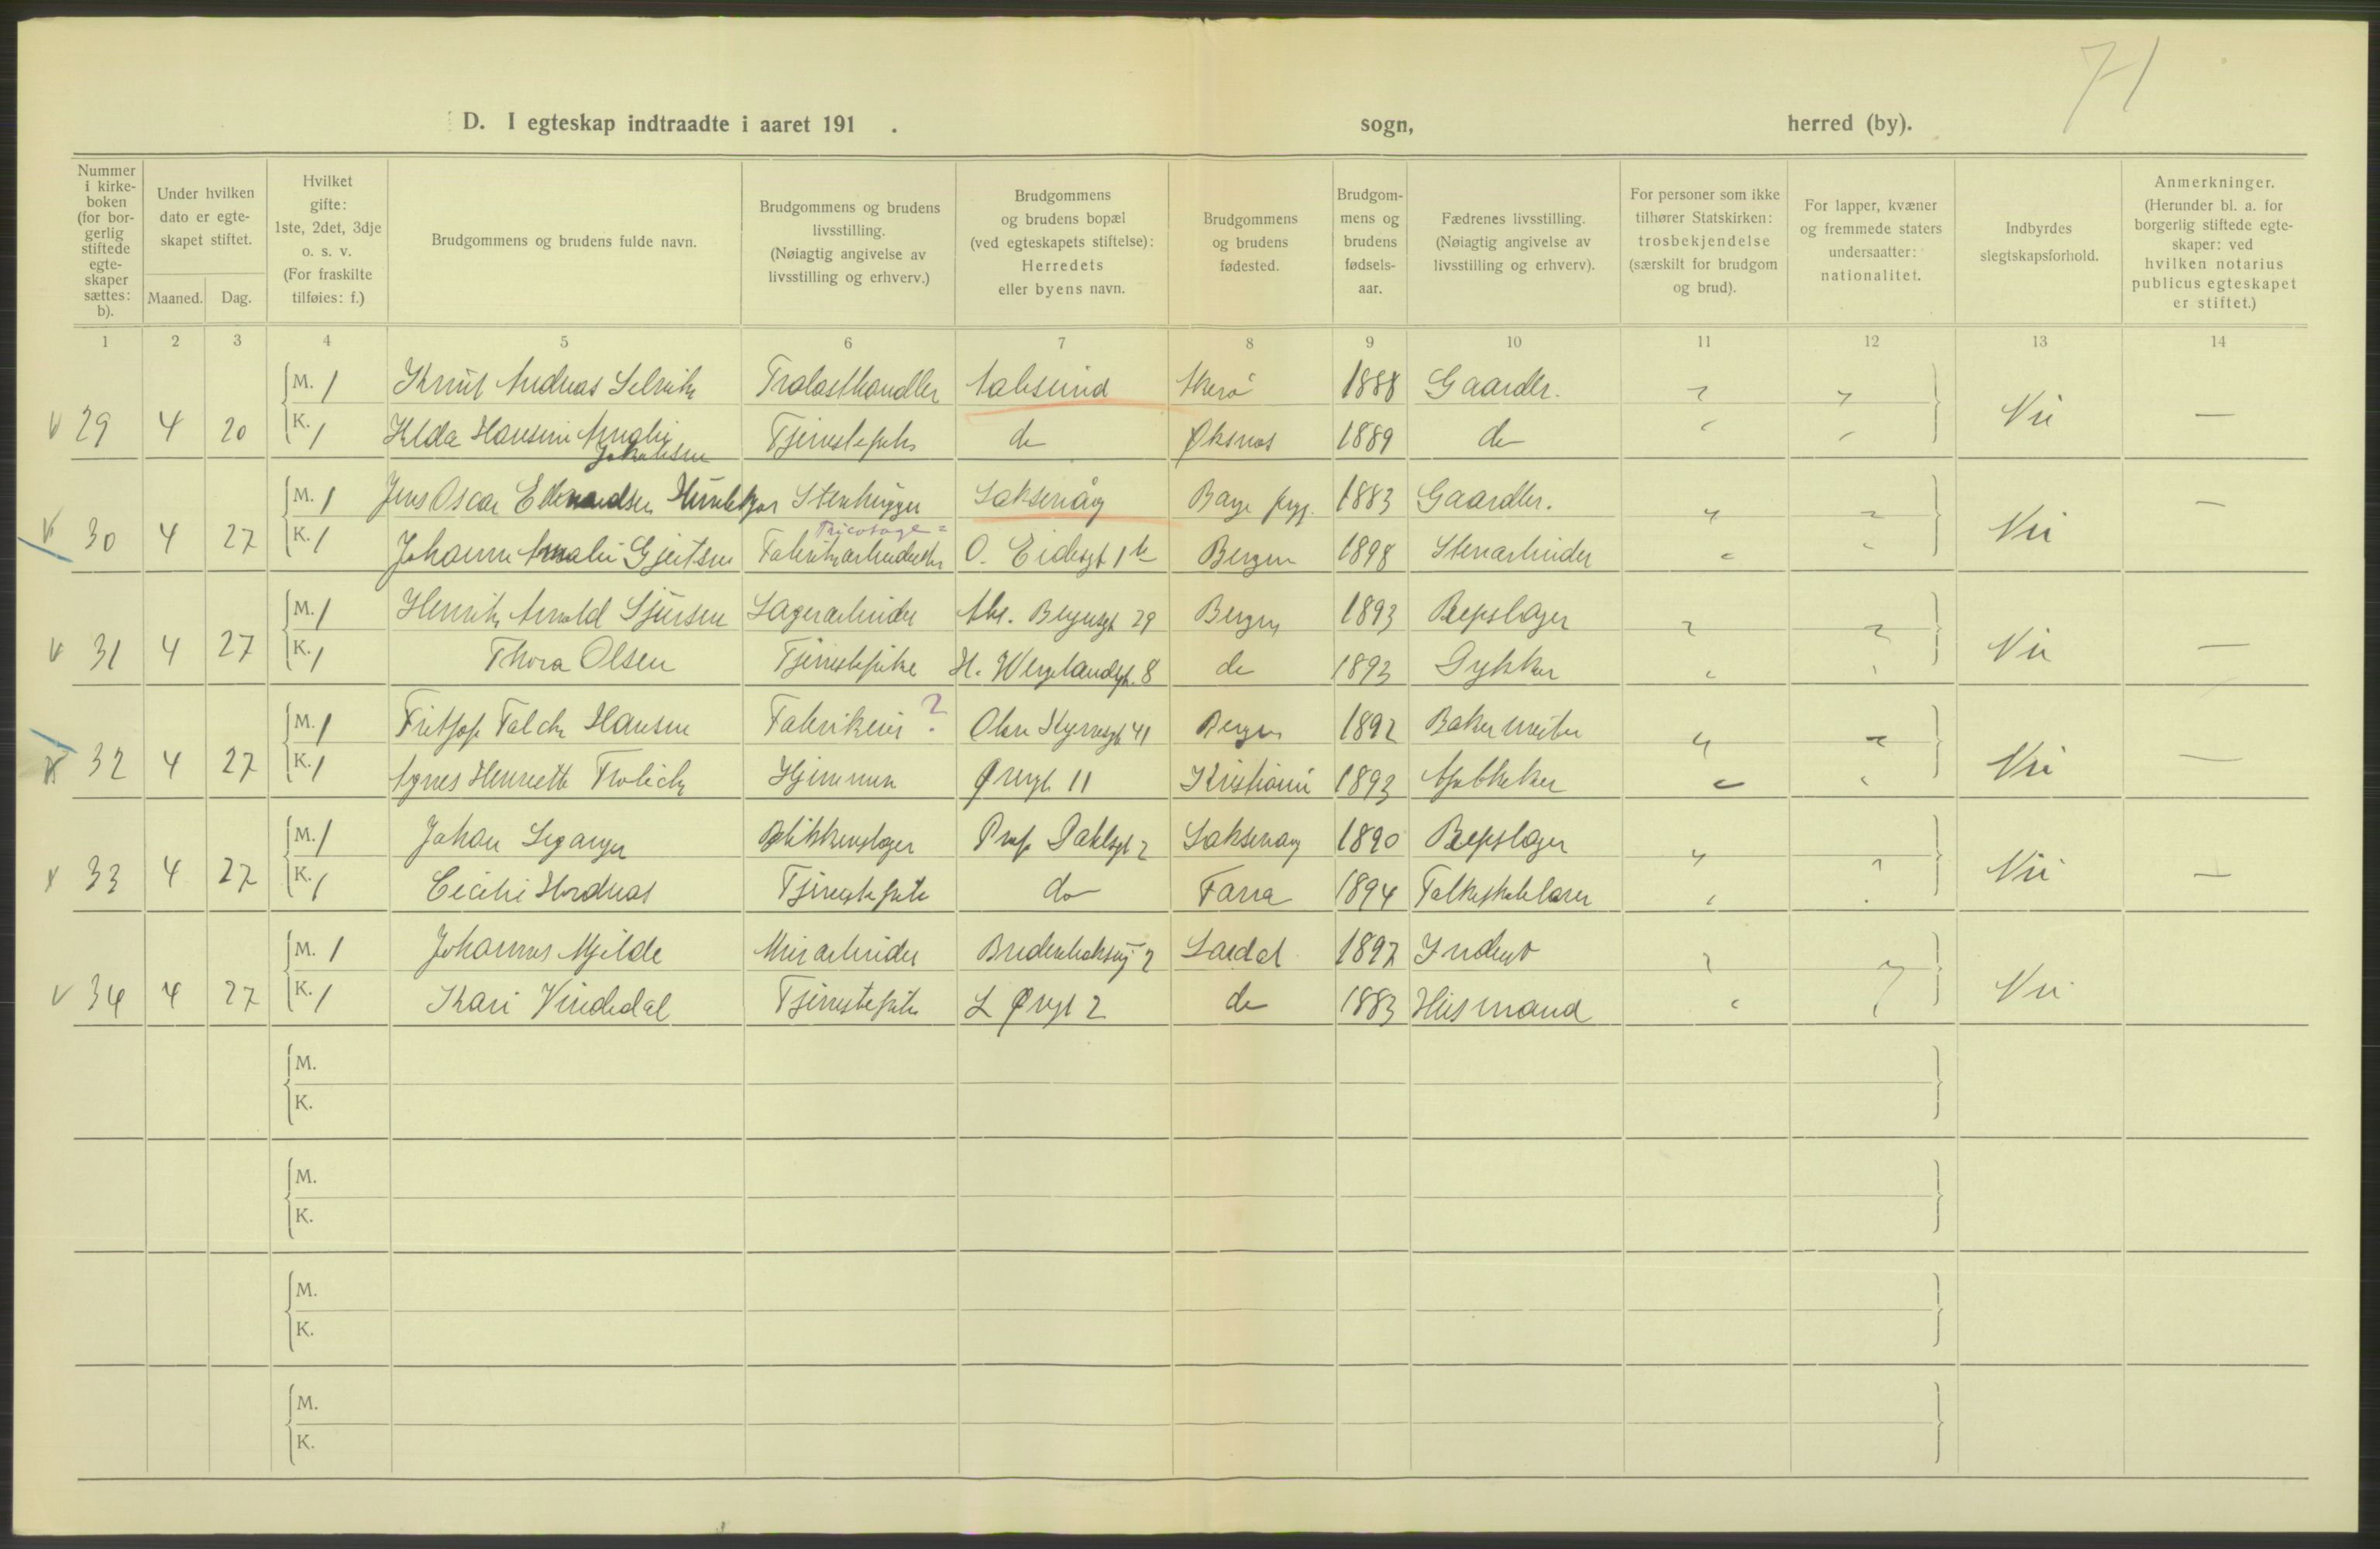 71
D. I egteskap indtraadte i aaret 191 . sogn, herred (by).
Nummer i kirke- boken (for bor- gerlig stiftede egte- skaper sættes: b).
Under hvilken dato er egte- skapet stiftet.
Maaned. Dag.
Hvilket gifte: 1ste, 2det, 3dje o. s. v. (For fraskilte tilføies: f.)
Brudgommens og brudens fulde navn.
Brudgommens og brudens livsstilling. (Nøiagtig angivelse av livsstilling og erhverv.)
Brudgommens og brudens bopæl (ved egteskapets stiftelse): Herredets eller byens navn.
Brudgommens og brudens fødested.
Brudgom- mens og brudens fødsels- aar.
Fædrenes livsstilling. (Nøiagtig angivelse av livsstilling og erhverv).
For personer som ikke tilhører Statskirken: trosbekjendelse (særskilt for brudgom og brud).
For lapper, kvæner og fremmede staters undersaatter: nationalitet.
Indbyrdes slegtskapsforhold.
Anmerkninger. (Herunder bl. a. for borgerlig stiftede egte- skaper: ved hvilken notarius publicus egteskapet er stiftet.)
1 2 3 4 5 6 7 8 9 10 11 12 13 14
M. 1 Knut Andreas Selvik Trælasthandler Aalesund Herø 1888 Gaardbr.
29 4 20 K. 1 Hansine Amalie Jakobsen Tjenestepike do Øksnes 1889 do Nei —
M. 1 Jens Oscar Stenhugger Laksevåg 1883 Gaardbr. —
Tricotage=
30 4 27 K. 1 Johanne Amalie Gjertsen Fabrikarbeiderske O. Bergen 1898 Stenarbeider Nei
M. 1 Henrik Arnold Sjursen Lagerarbeider 29 Bergen 1893 Repslager
31 4 27 K. 1 Thora Olsen Tjenestepike H. Wergelandsgt. 8 do 1893 Dykker Nei —
M. 1 Fritjof Falck Hansen Fabrikeier ? Olav Kyrresgt 41 Bergen 1892 Bakermester
32 4 27 K. 1 Agnes Henriette Frolich Hjemme Øvregt 11 Kristiania 1893 Apotheker Nei —
M. 1 Johan Blikkenslager Prof Dahlsgt 2 Laksevaag 1890 Repslager
33 4 27 K. 1 Cecilie Hordnes Tjenestepike do Fana 1894 Folkeskolelærer Nei —
M. 1 Johannes Mjelde Murarbeider 2 Lærdal 1892 Inderst
34 4 27 K. 1 Kari Vindedal Tjenestepike L Øvregt 2 do 1883 Husmand Nei
M.
K.
M.
K.
M.
K.
M.
K.